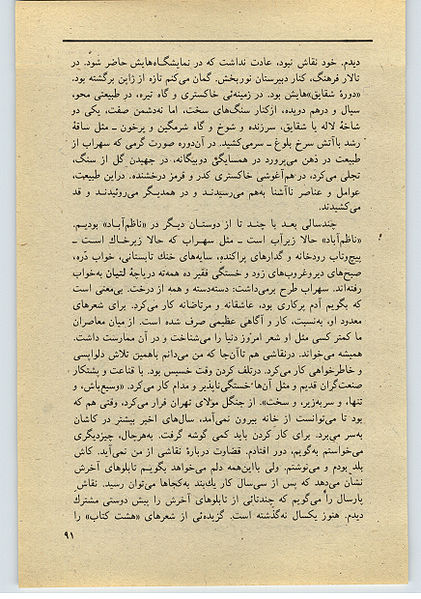 دیدم. خود نقاش نبود، عادت نداشت که در نمایشگاه‌هایش حاضر شود. در
تالار فرهنگ، کنار دبیرستان نوربخش. گمان می‌کنم تازه از ژاپن برگشته بود.
«دورهٔ شقایق»هایش بود. در زمینه‌ئی خاکستری و گاه تیره، در طبیعتی محو،
سیال و درهم دویده، ازکنار سنگ‌های سخت، اما نه‌دشمن صفت، یکی دو
شاخهٔ لاله یا شقایق، سرزنده و شوخ و گاه شرمگین و پرخون ـ مثل ساقهٔ
رشد باآتش سرخ بلوغ ـ سرمی‌کشید. در آن‌دوره صورت گرمی که سهراب از
طبیعت در ذهن می‌پرورد در همسایگی دوبیگانه، در جهیدن گل از سنگ،
تجلی می‌کرد، در هم‌آغوشی خاکستری کدر و قرمز درخشنده. دراین طبیعت،
عوامل و عناصر ناآشنا به‌هم می‌رسیدند و در همدیگر می‌روئیدند و قد
می‌کشیدند.
چندسالی بعد با چند تا از دوستان دیگر در «ناظم‌آباد» بودیم.
«ناظم‌آباد» حالا زیرآب است ـ مثل سهراب که حالا زیرخاك است ـ
پیچ‌وتاب رودخانه و گدارهای پراکنده، سایه‌های خنك تابستانی، خواب دره،
صبح‌های دیروغروب‌های زود و خستگی فقیر ده همه‌ته دریاچهٔ لتیان به‌خواب
رفته‌اند. سهراب طرح برمی‌داشت: دسته‌دسته و همه از درخت. بی‌معنی است
که بگویم آدم پرکاری بود، عاشقانه و مرتاضانه کار می‌کرد. برای شعرهای
معدود او، به‌نسبت، کار و آگاهی عظیمی صرف شده است. از میان معاصران
ما کمتر کسی مثل او شعر امروز دنیا را می‌شناخت و در آن ممارست داشت.
همیشه می‌خواند. درنقاشی هم تاآن‌جا که من می‌دانم باهمین تلاش دلواپسی
و خاطرخواهی کار می‌کرد. درتلف کردن وقت خسیس بود. با قناعت و پشتکار
صنعت‌گران قدیم و مثل آن‌ها خستگی‌ناپذیر و مدام کار می‌کرد. «وسیع‌باش، و
تنها، و سربه‌زیر، و سخت». از جنگل مولای تهران فرار می‌کرد، وقتی هم که
بود تا می‌توانست از خانه بیرون نمی‌آمد، سال‌های اخیر بیشتر در کاشان
به‌سر می‌برد. برای کار کردن باید کمی گوشه گرفت. به‌هرحال، چیزدیگری
می‌خواستم به‌گویم، دور افتادم. قضاوت دربارهٔ نقاشی از من نمی‌آید. کاش
بلد بودم و می‌نوشتم. ولی بااین‌همه دلم می‌خواهد بگویم تابلوهای آخرش
نشان می‌دهد که پس از سی‌سال کار یك‌بند به‌کجاها می‌توان رسید. نقاشی
پارسال را می‌گویم که چندتائی از تابلوهای آخرش را پیش دوستی مشترك
دیدم. هنوز یکسال نه‌گذشته است. گزیده‌ئی از شعرهای «هشت کتاب» را
۹۱